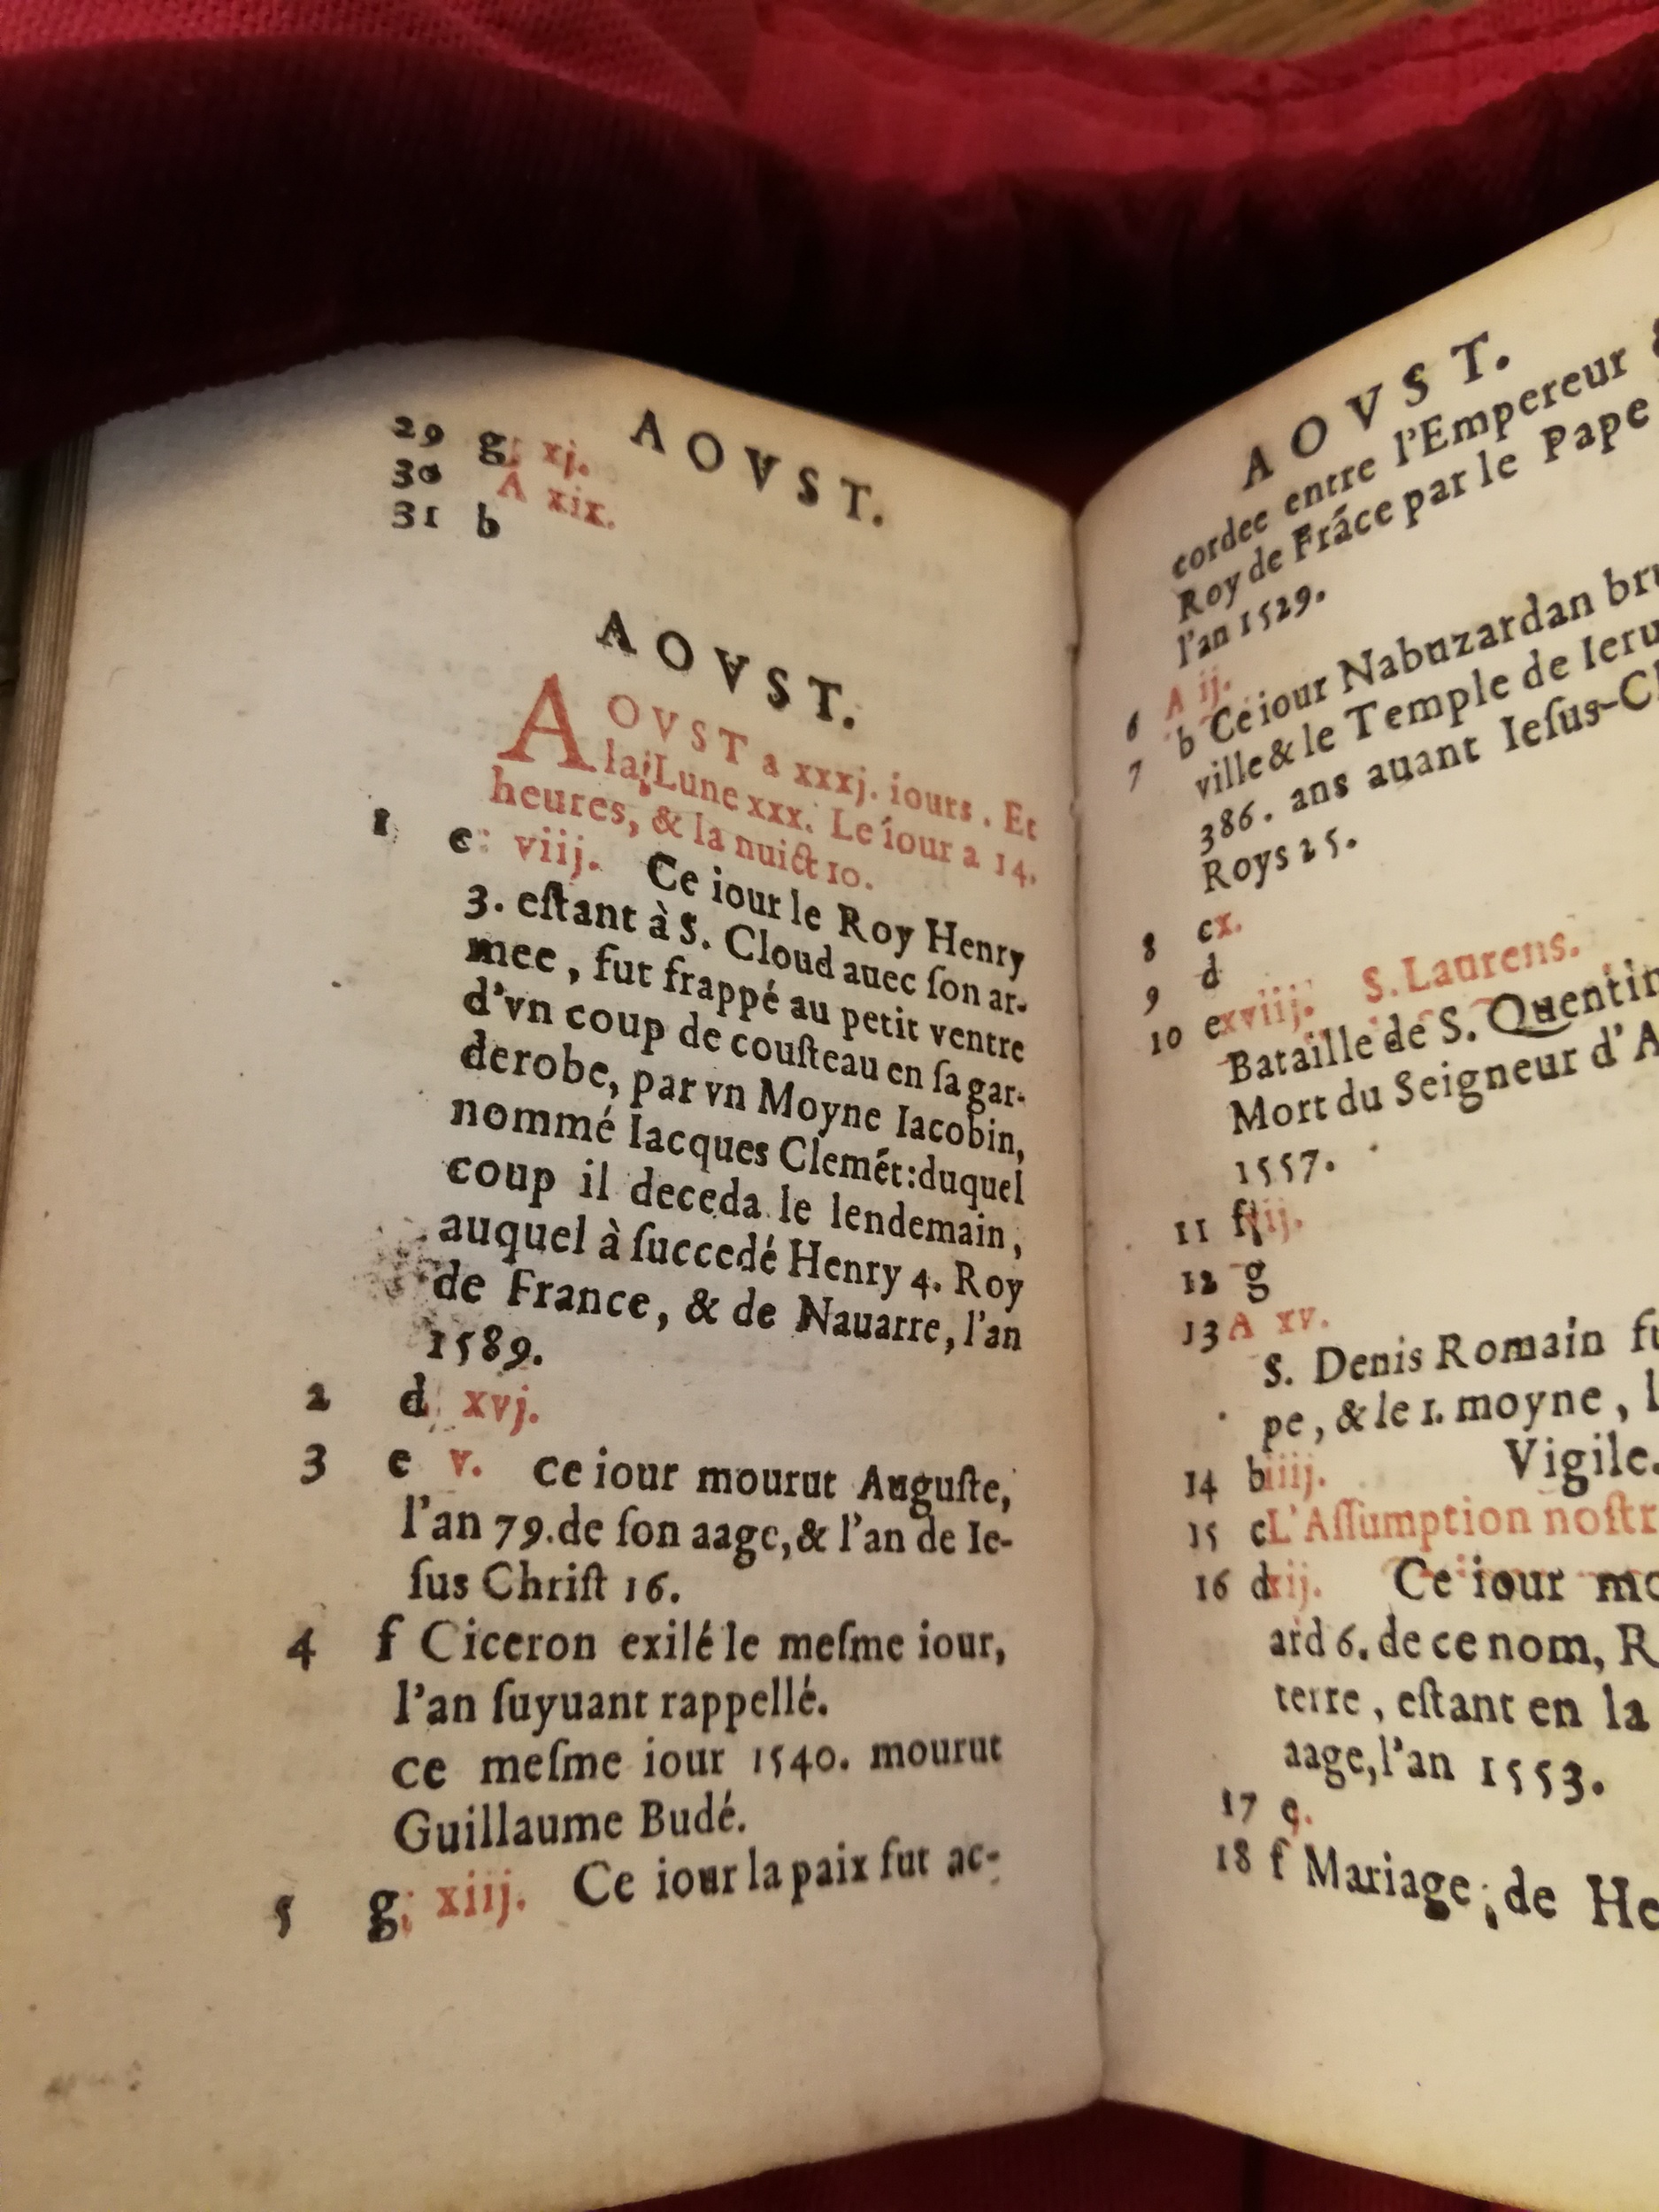 AOVST.
29 g xj.
30 A xix.
31 b
AOVST.
AOVST a xxxj. iours. Et
la Lune xxx. Le iour a 14.
heures, & la nuict 10.
1 c viij. Ce iour le Roy Henry
3. eſtant à S. Cloud auec ſon ar-
mee, fut frappé au petit ventre
d'vn coup de couſteau en ſa gar-
derobe, par vn Moyne Iacobin,
nommé Iacques Clemét: duquel
coup il deceda le lendemain,
auquel à ſuccedé Henry 4. Roy
de France, & de Nauarre, l'an
1589.
2 d xvj.
3 e v. ce iour mourut Auguſte,
l'an 79. de ſon aage, & l'an de Ie-
ſus Chriſt 16.
4 f Ciceron exilé le meſme iour,
l'an ſuyuant rappellé.
ce meſme iour 1540. mourut
Guillaume Budé.
5 g xiij. Ce iour la paix fut ac-
AOVST.
cordee entre l'Empereur
Roy de Fráce par le Pape
l'an 1529.
6 A ij.
7 b Ce iour Nabuzardan bru
ville & le Temple de Ieru
386. ans auant Ieſus-Ch
Roys 25.
8 c x.
9 d
10 e xviij. S. Laurens.
Bataille de S. Quentin
Mort du Seigneur d'A
1557.
11 f vij.
12 g
13 A xv.
S. Denis Romain fu
pe, & le 1. moyne, l
Vigile.
14 b iiij.
15 c L'Aſſumption noſtr
16 d xij. Ce iour mo
ard 6. de ce nom, R
terre, eſtant en la
aage, l'an 1553.
17 e
18 f Mariage de He